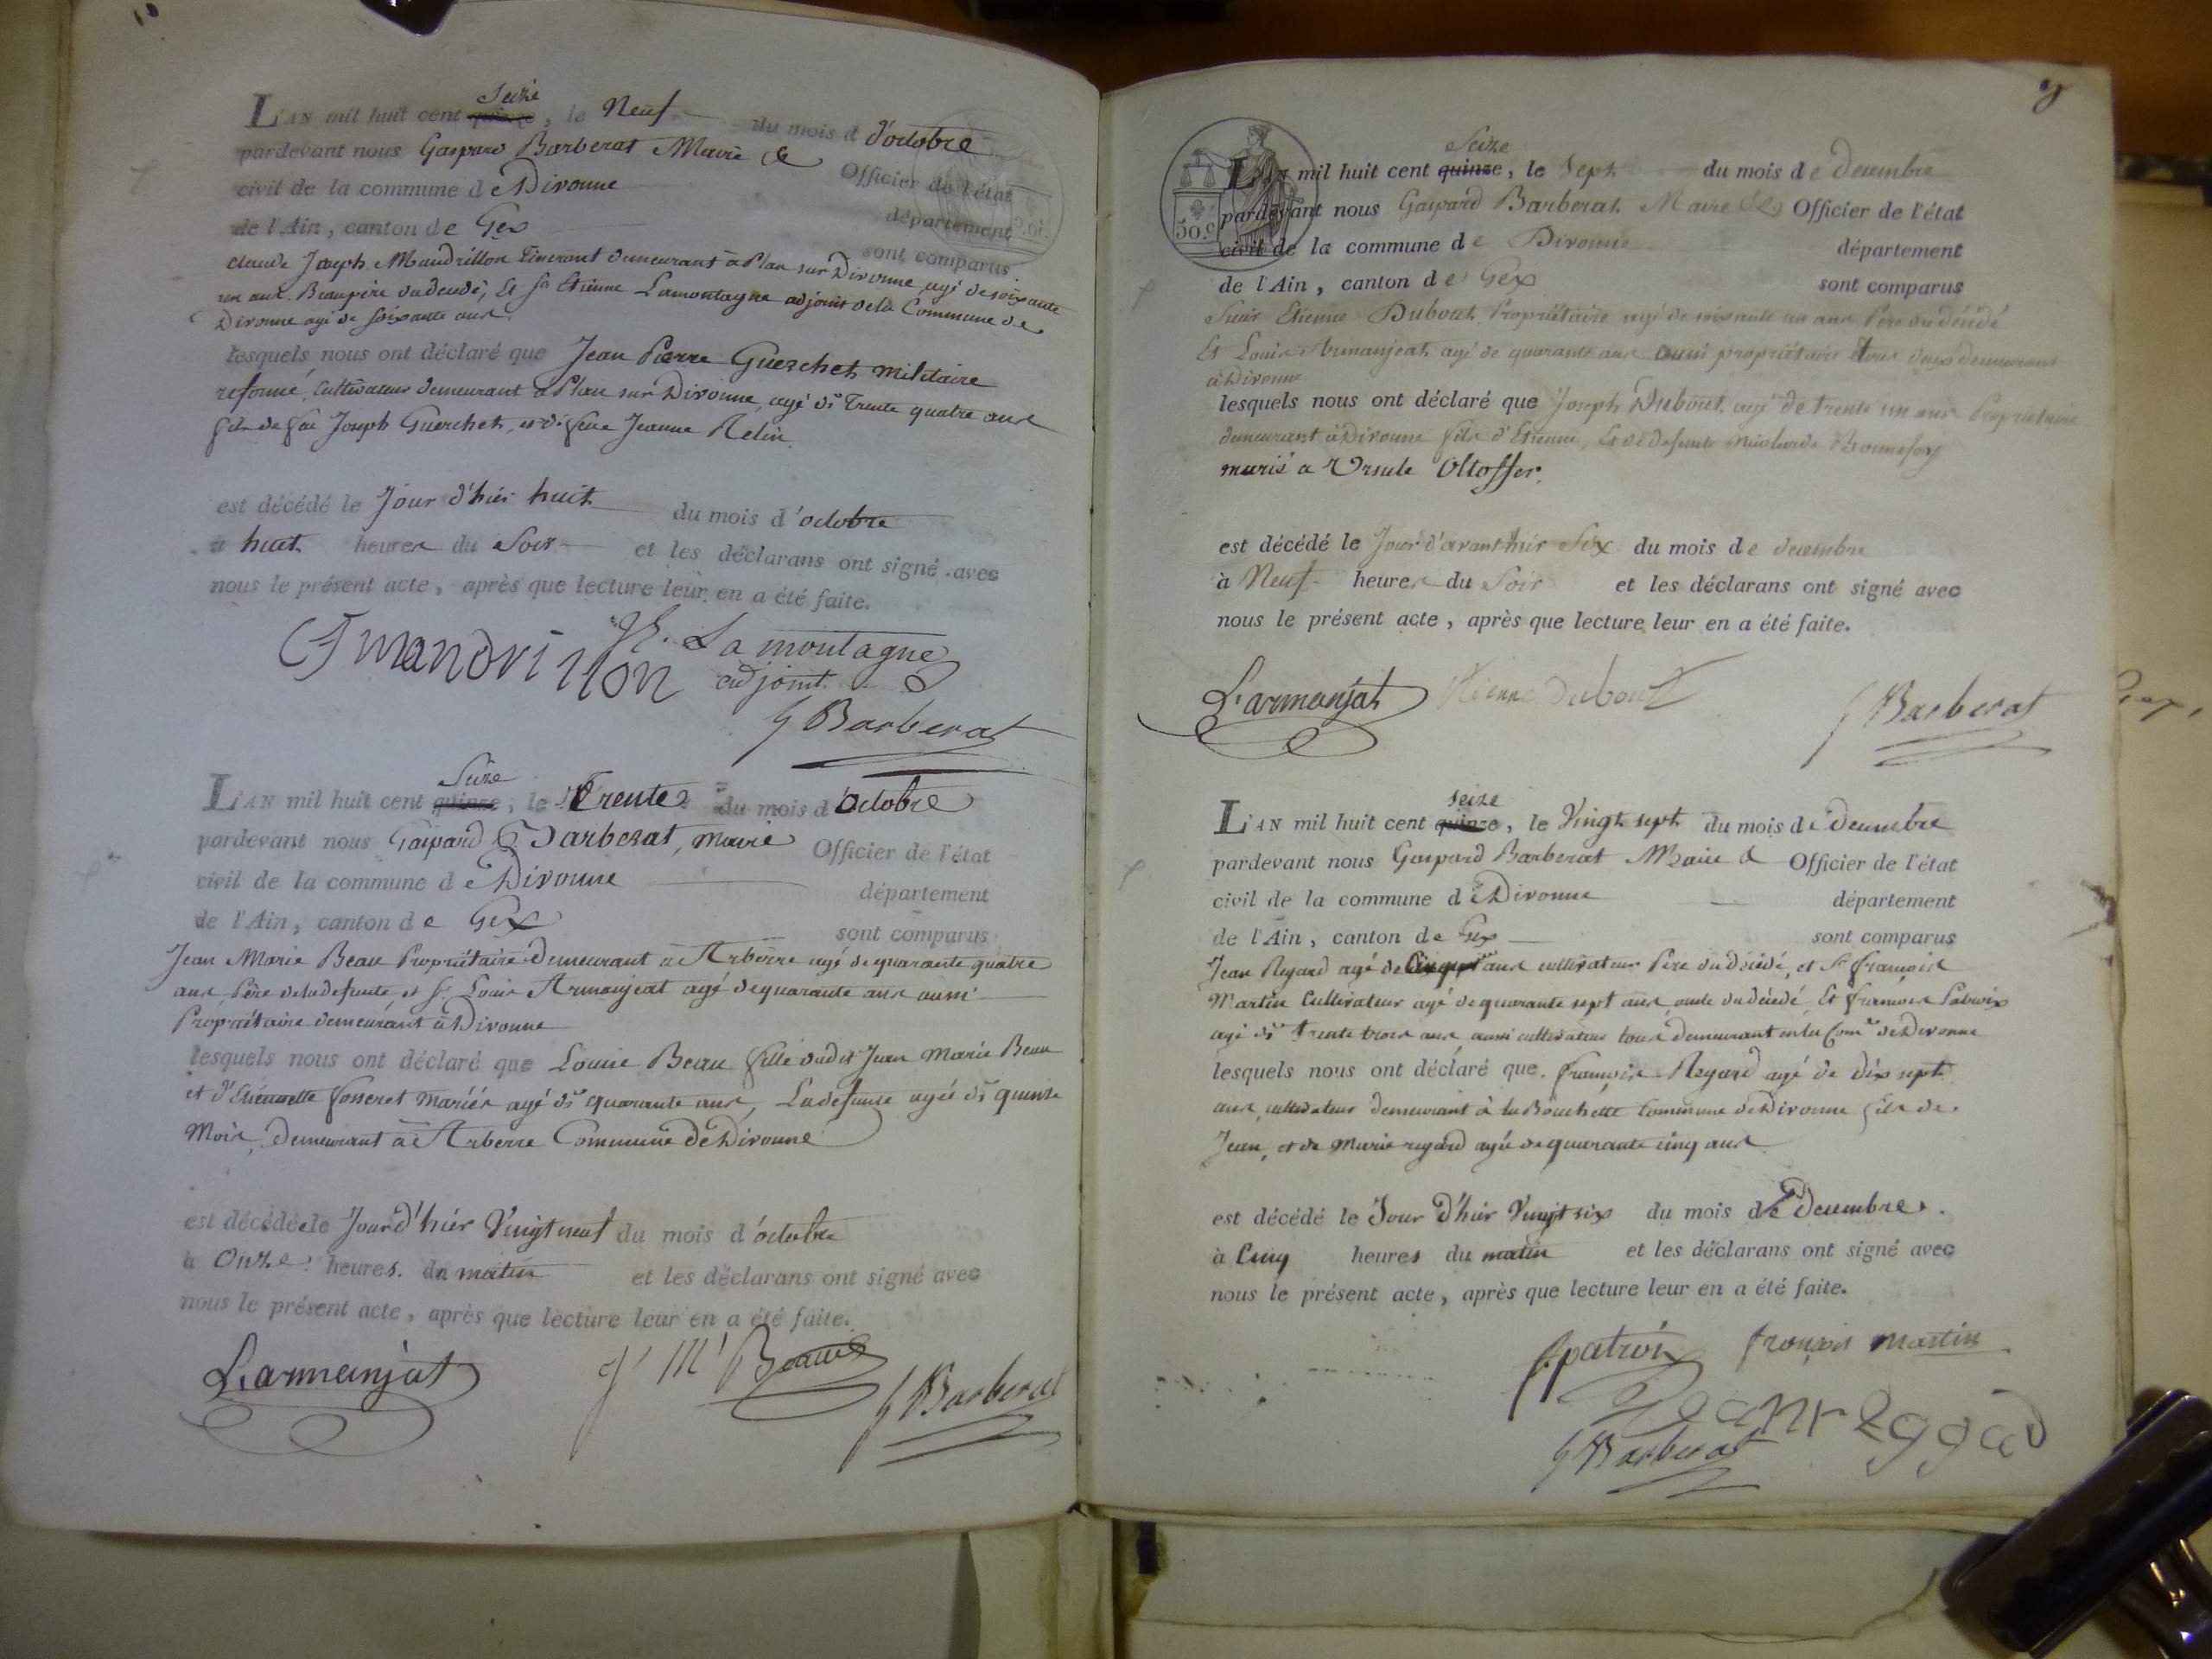 Seize
L'AN mil huit cent quinze, le Neuf du mois d d'octobre
pardevant nous Gaspard Barberat Maire & Officier de l'état
civil de la commune de Divonne département
de l'Ain, canton de Gex sont comparus
Claude Joseph Mandrillon demeurant à Plan sur Divonne agé de soixante
un ans Beaupère du décédé, Et Sr Etienne Lamontagne adjoint de la Commune de
Divonne agé de soixante ans
lesquels nous ont déclaré que Jean Pierre Guerchet militaire
reformé, Cultivateur demeurant à Plan sur Divonne, agé de Trente quatre ans
fils de feu Joseph Guerchet, et de feue Jeanne
est décédé le Jour d'hier huit du mois d'octobre
à huit heures du Soir et les déclarans ont signé avec
nous le présent acte, après que lecture leur en a été faite.
Lamontagne
mandrillon adjoint
G Barberat
Seize
L'AN mil huit cent quinze, le Trente du mois d'Octobre
pardevant nous Gaspard Barberat, Maire Officier de l'état
civil de la commune de Divonne département
de l'Ain, canton de Gex sont comparus
Jean Marie Beau Propriétaire demeurant à Arberre agé de quarante quatre
ans, Père de la defunte, et Sr Louis Armanjeat agé de quarante ans aussi
Propriétaire demeurant à Divonne
lesquels nous ont déclaré que Louise Beau fille dudit Jean Marie Beau
et d' Fosseret Mariés agé de quarante ans, La defunte agée de quinze
Mois, Demeurant à Arberre Commune de Divonne
est décédée le Jour d'hier Vingt neuf du mois d'octobre
à Onze heures du matin et les déclarans ont signé avec
nous le présent acte, après que lecture leur en a été faite.
L armanjat J M Beau G Barberat
50.c
Seize
L'AN mil huit cent quinze, le Sept du mois de Decembre
pardevant nous Gaspard Barberat Maire & Officier de l'état
civil de la commune de Divonne département
de l'Ain, canton de Gex sont comparus
Sieur Etienne Dubout Propriétaire agé de soixante un ans Père du décédé
Et Louis Armanjeat agé de quarante ans aussi propriétaire tous deux demeurant
à Divonne
lesquels nous ont déclaré que Joseph Dubout agé de trente un ans Propriétaire
demeurant à Divonne fils d'Etienne, Et de defunte Bonnefoy
marié a Ursule Oltoffer.
est décédé le Jour d'avant hier Six du mois de decembre
à Neuf heures du Soir et les déclarans ont signé avec
nous le présent acte, après que lecture leur en a été faite.
L armanjat Etienne dubout G Barberat
seize
L'AN mil huit cent quinze, le Vingt sept du mois de Decembre
pardevant nous Gaspard Barberat Maire & Officier de l'état
civil de la commune de Divonne département
de l'Ain, canton de Gex sont comparus
Jean Regard agé de ans cultivateur Père du décédé, et Sr françois
Martin Cultivateur agé de quarante sept ans, oncle du décédé, Et françois
agé de Trente trois ans, aussi cultivateur tous demeurant en la Comne de Divonne
lesquels nous ont déclaré que françois Regard agé de dix sept
ans, cultivateur demeurant à la Bouchette Commune de Divonne fils de
Jean, et de Marie regard agée de quarante cinq ans
est décédé le Jour d'hier Vingt six du mois de Decembre
à Cinq heures du matin et les déclarans ont signé avec
nous le présent acte, après que lecture leur en a été faite.
françois martin
Jean reggad
G Barberat